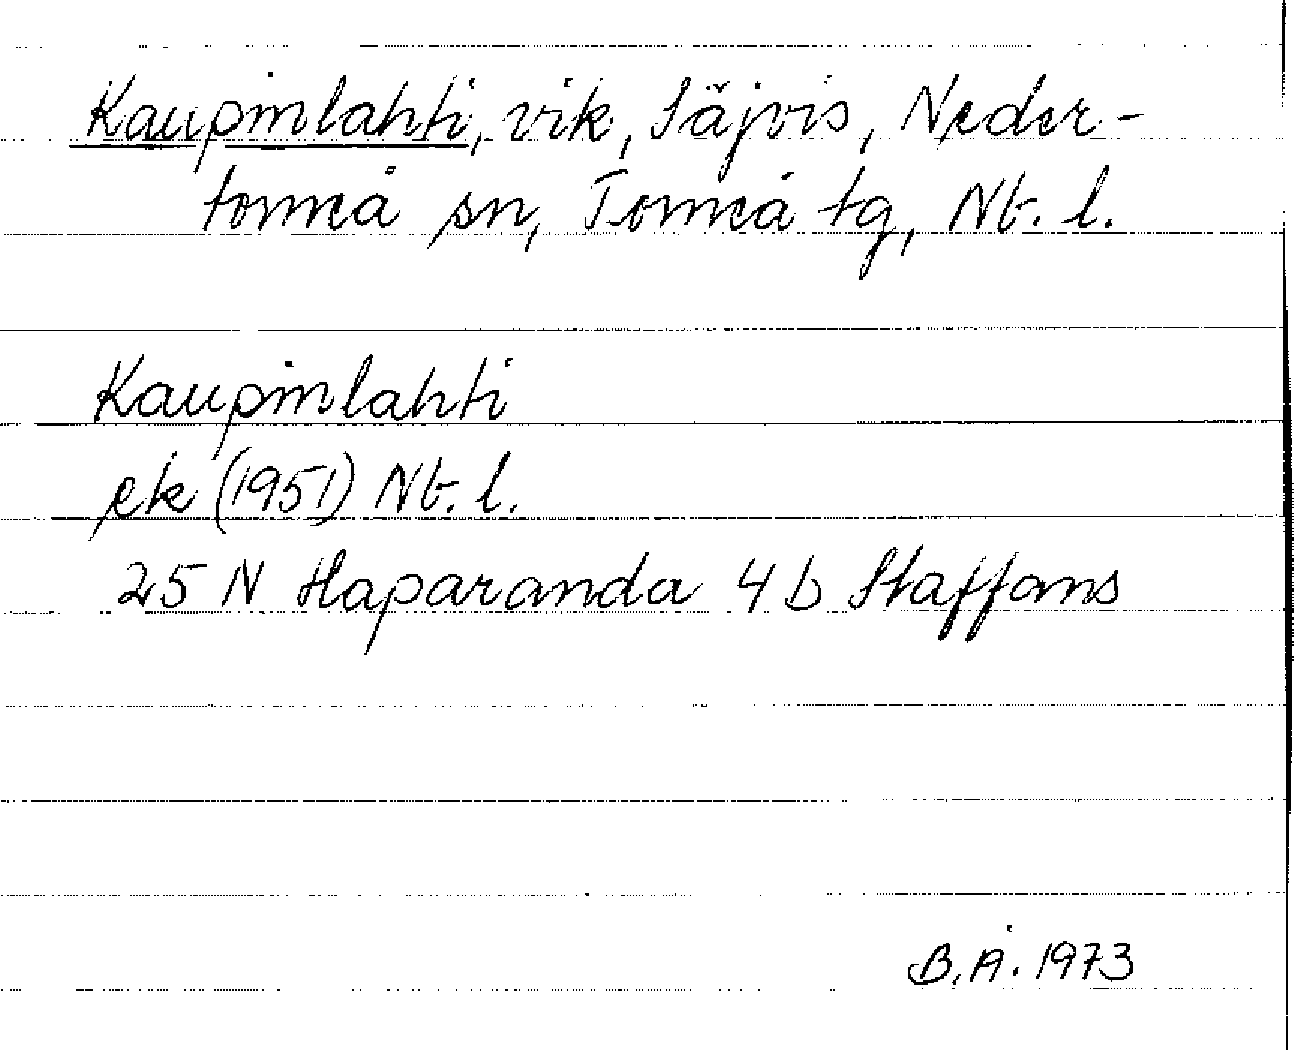 Kaupinlahti, vik, Säjvis, Neder-
torneå sn, Torneå tg, Nb. l.
Kaupinlahti
ek (1951) Nb. l.
25 N Haparanda 4 b Staffans
B.Å. 1973